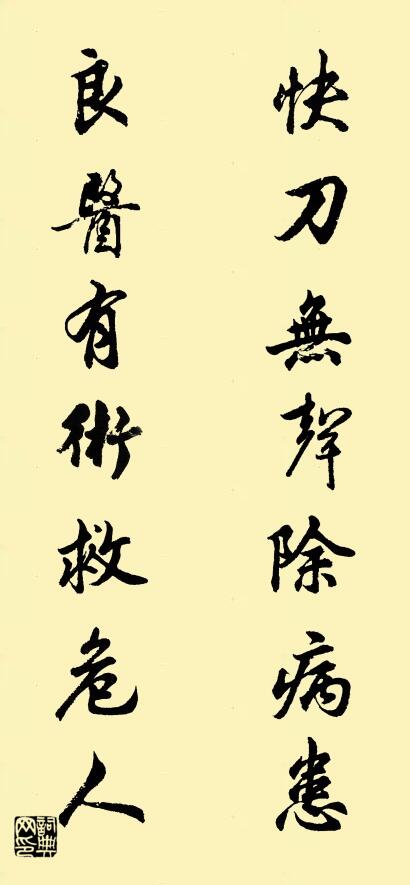 快刀無聲除病患
良醫有術救危人
詞典
网印